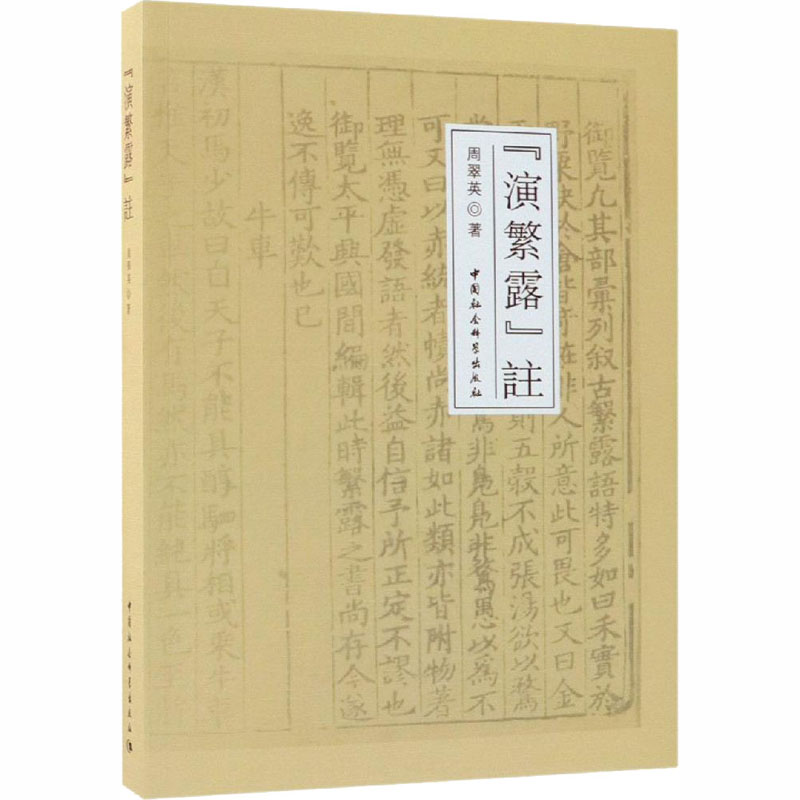 『演繁露』註
周翠英◎著
中国社会科学出版社
『演繁露』註
周翠英◎著
中国社会科学出版社
御覽九其部彙列叙古繁露語特多如曰禾實於
野粟缺於倉皆奇怪非人所意此可畏也又曰金
則五穀不成張湯欲以鶩
為非鳧鳧非鶩愚以為不
可又曰以赤統者幘尚赤諸如此類亦皆附物著
理無憑虛發語者然後益自信予所正定不謬也
御覽太平興國間編輯此時繁露之書尚存今遂
逸不傳可歎也已
牛車
漢初馬少故曰自天子不能具醇駟將相或乘牛車